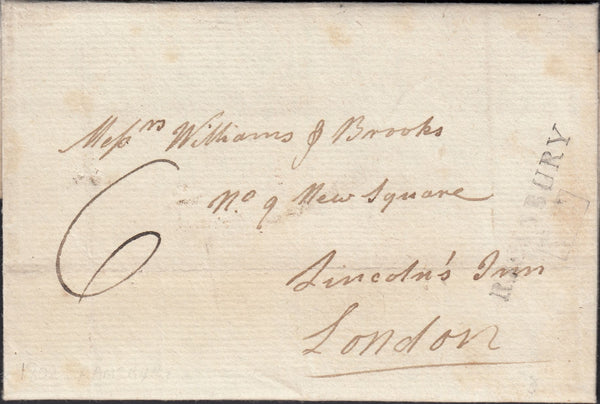 Messrs Williams & Brooks
No 9 New Square
6
Lincoln's Inn
London